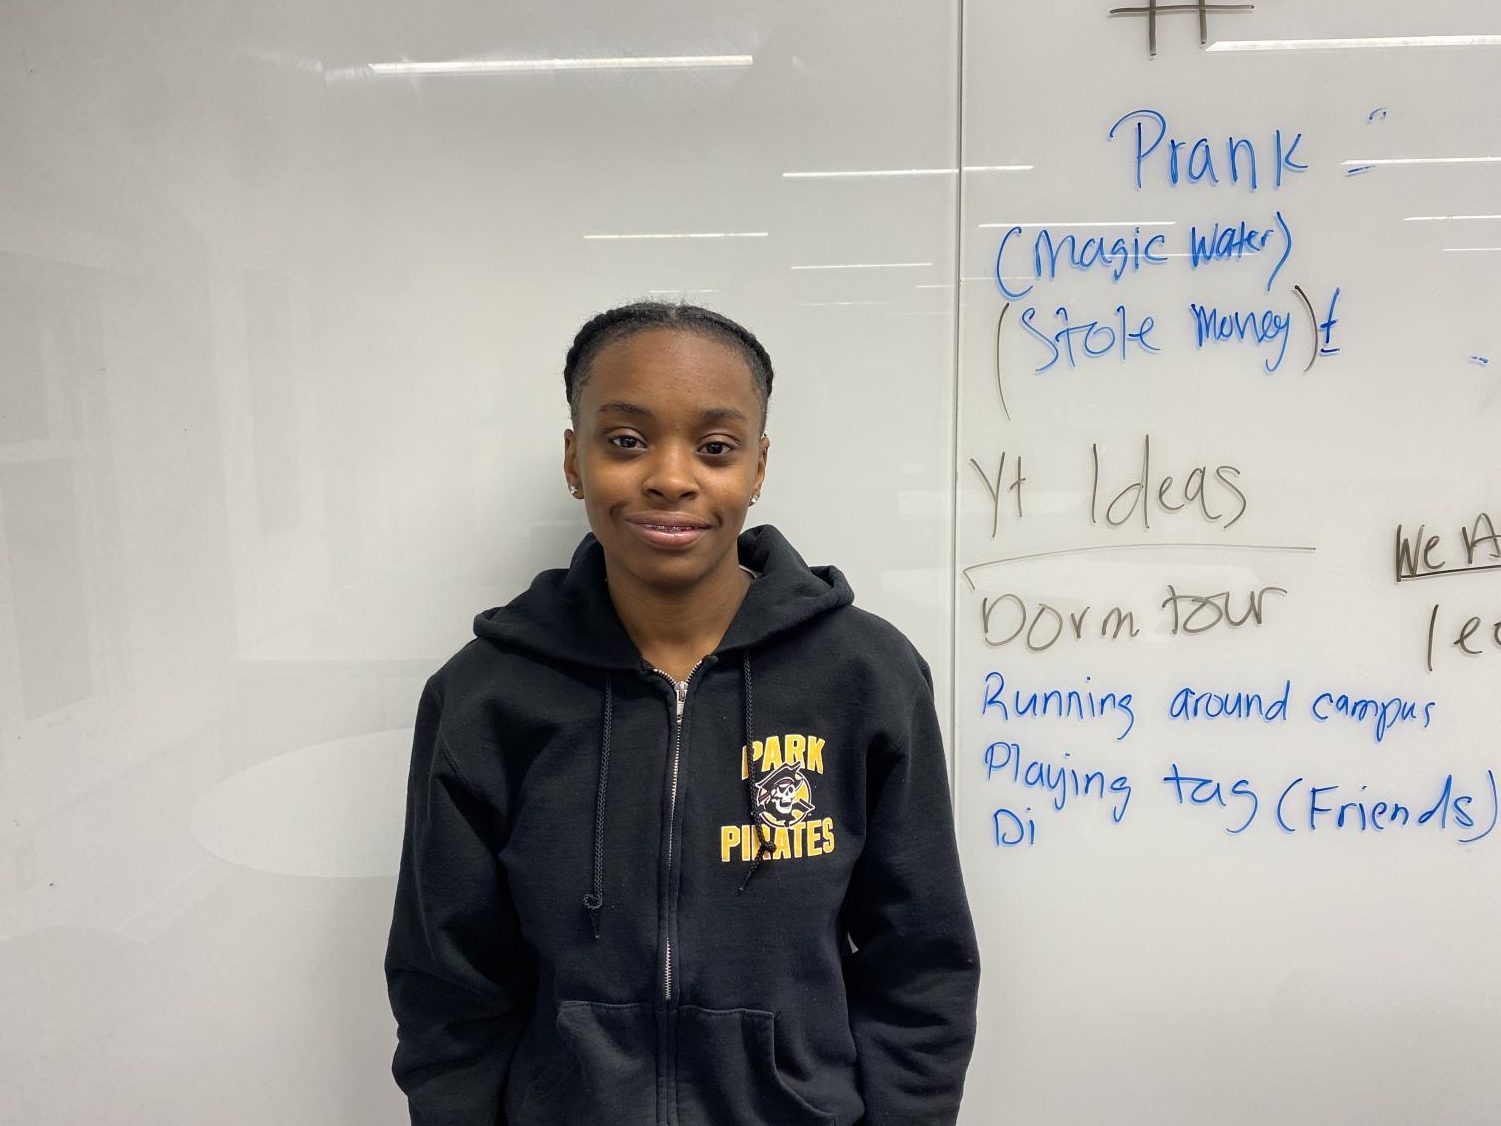 PARK
PIRATES
#
Prank =
(Magic Water)
(Stole Money)
Yt Ideas
Dorm tour
Running around campus
Playing tag (Friends)
Di
We